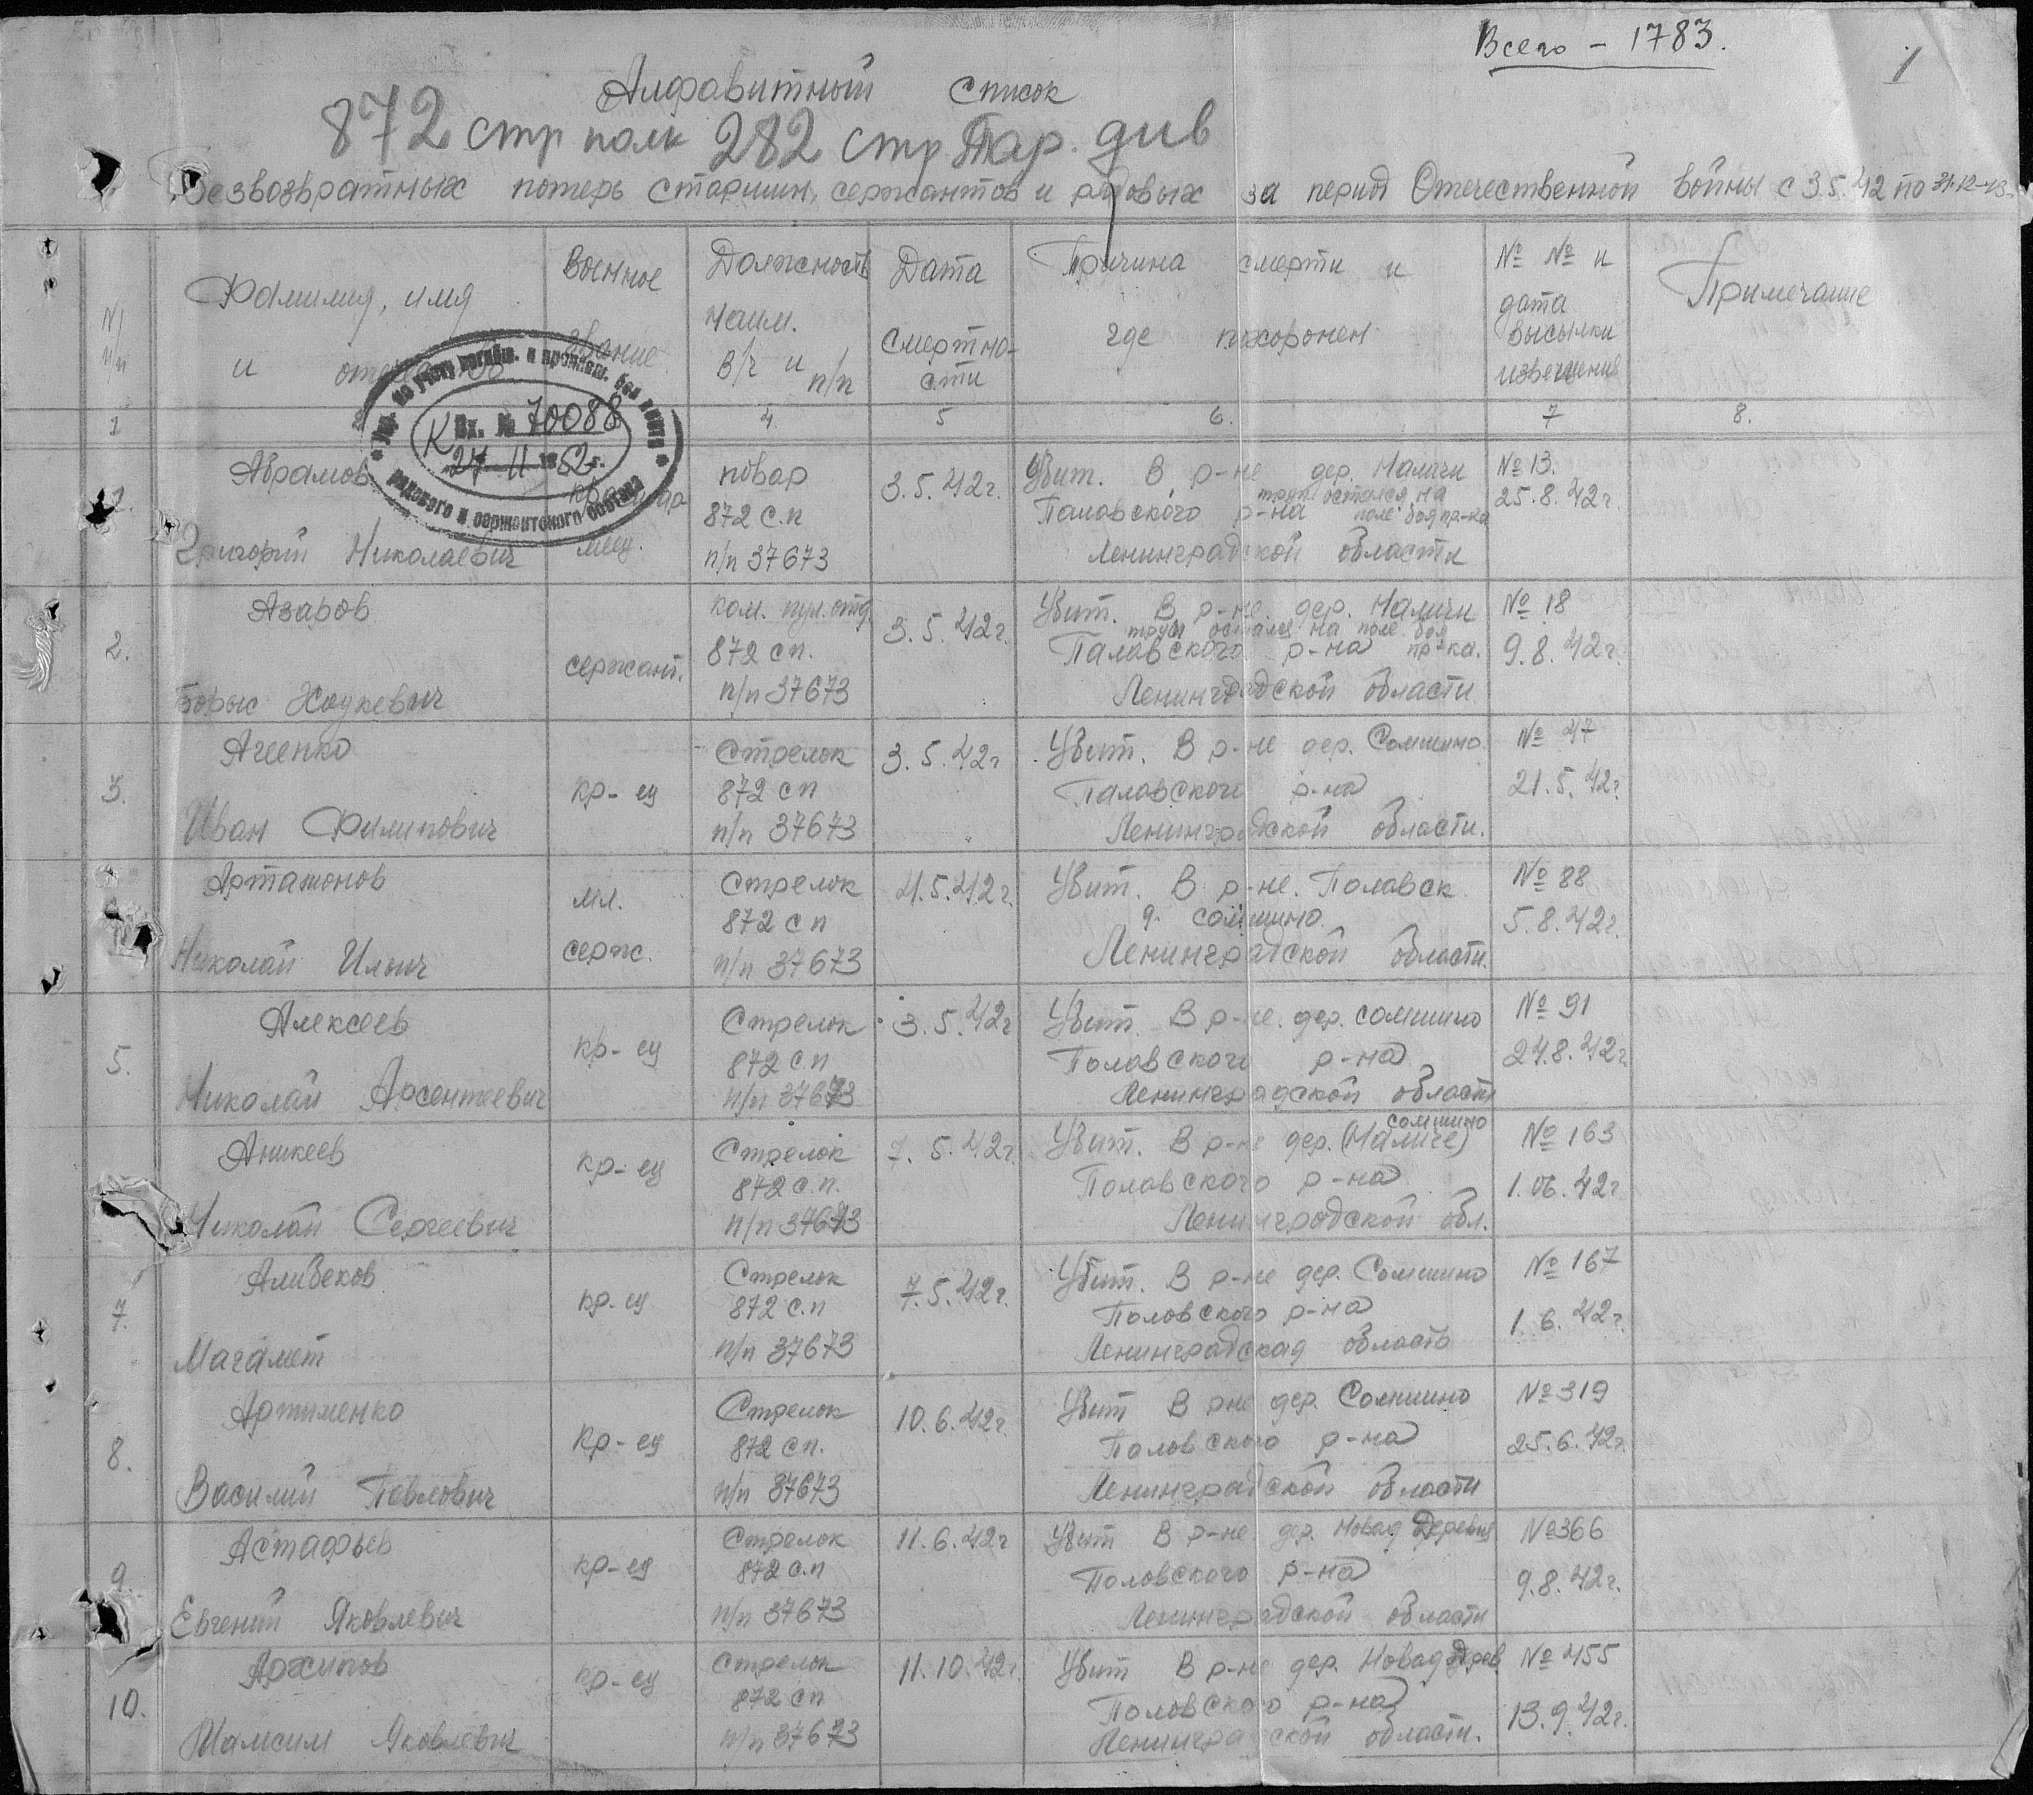 Всего - 1783.
1
Алфавитный список
872 стр полк 282 стр Тар. див
Безвозвратных потерь старшин, сержантов и рядовых за период Отечественной войны с 3.5.42 по 31-12-43
№ п/п
Фамилия, имя и отчество
Военное звание
Должность наим. в/ч и п/п
Дата смертности
Причина смерти и где похоронен
№ № и дата высылки извещения
Примечание
1 4. 5 6. 7 8.
Вх. № 70088
27 - 11 1952 г.
рядового и сержантского состава
1.
Абрамов
Григорий Николаевич
повар
872 с.п
п/п 37673
3.5.42г.
Убит. В р-не дер. Налючи
труп остался на поле боя пр-ка
Паловского р-на
Ленинградской области
№ 13.
25.8.42г.
2.
Азаров
Борис
сержант.
ком. пул. отд.
872 сп.
п/п 37673
3.5.42г.
Убит. В р-не дер. Налючи
труп остался на поле боя
Паловского р-на пр-ка.
Ленинградской области
№ 18
9.8.42г.
3.
Агеенко
Иван Филипович
кр-ец
Стрелок
872 сп
п/п 37673
3.5.42г
Убит. В р-не дер. Сомшино
Паловского р-на
Ленинградской области.
№ 47
21.5.42г.
Артамонов
Николай Ильич
мл.
серж.
Стрелок
872 сп
п/п 37673
4.5.42г.
Убит. В р-не. Полавск
д. сомшино.
Ленинградской области.
№ 88
5.8.42г.
5.
Алексеев
Николай Арсентеевич
кр-ец
Стрелок
872 сп
п/п 37673
3.5.42г
Убит. В р-не. дер. сомшино
Половского р-на
Ленинградской области
№ 91
24.8.42г.
Аникеев
Николай Сергеевич
кр-ец
Стрелок
872 с.п.
п/п 37673
7.5.42г.
сомшино
Убит. В р-не дер. (Наличе)
Половского р-на
Ленинградской обл.
№ 163
1.06.42г
7.
Алибеков
Магамет
кр-ец
Стрелок
872 с.п
п/п 37673
7.5.42г.
Убит. В р-не дер. Сомшино
Половского р-на
Ленинградская область
№ 167
1.6.42г.
8.
Артименко
Василий Павлович
кр-ец
Стрелок
872 сп.
п/п 37673
10.6.42г.
Убит В рне дер. Сомшино
Половского р-на
Ленинградской области
№ 319
25.6.42г.
9
Астафьев
Евгений Яковлевич
кр-ец
Стрелок
872 с.п
п/п 37673
11.6.42г
Убит В р-не дер. Новая Деревня
Половского р-на
Ленинградской области
№ 366
9.8.42г.
10.
Архипов
Мамсим Яковлевич
кр-ец
Стрелок
872 сп
п/п 37673
11.10.42г.
Убит В р-не дер. Новая Дерев.
Половского р-на
Ленинградской области.
№ 455
13.9.42г.